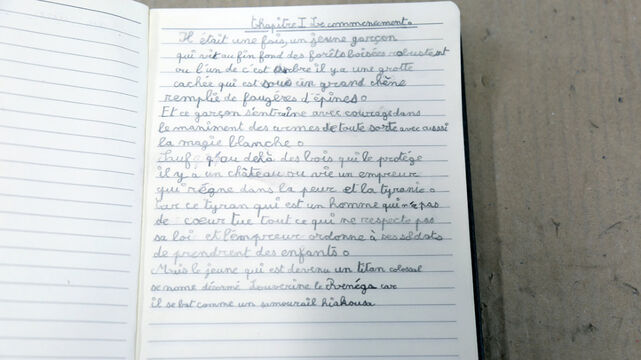 Chapitre I Le commencement.
Il était une fois, un jeune garçon
qui vit au fin fond des forêts boisées robustes et
ou l'un de c'est arbre il y a une grotte
cachée qui est sous un grand chêne
remplie de fougères d'épines.
Et ce garçon s'entraîne avec courage dans
le maniment des armes de toute sorte avec aussi
la magie blanche.
Sauf qu'au delà des bois qui le protège
il y a un château ou vie un empreur
qui règne dans la peur et la tyranie.
Car ce tyran qui est un homme qui n'a pas
de cœur tue tout ce qui ne respecte pas
sa loi et l'empreur ordonne à ses soldats
de prendrent des enfants.
Mais le jeune qui est devenu un titan colossal
se nome désormé Louverine le Renéga car
il se bat comme un samouraïl